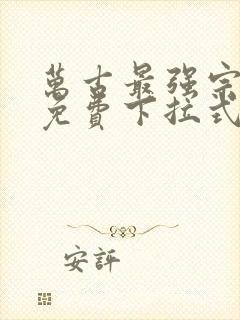 萬古最强宗
免費下拉式
安評